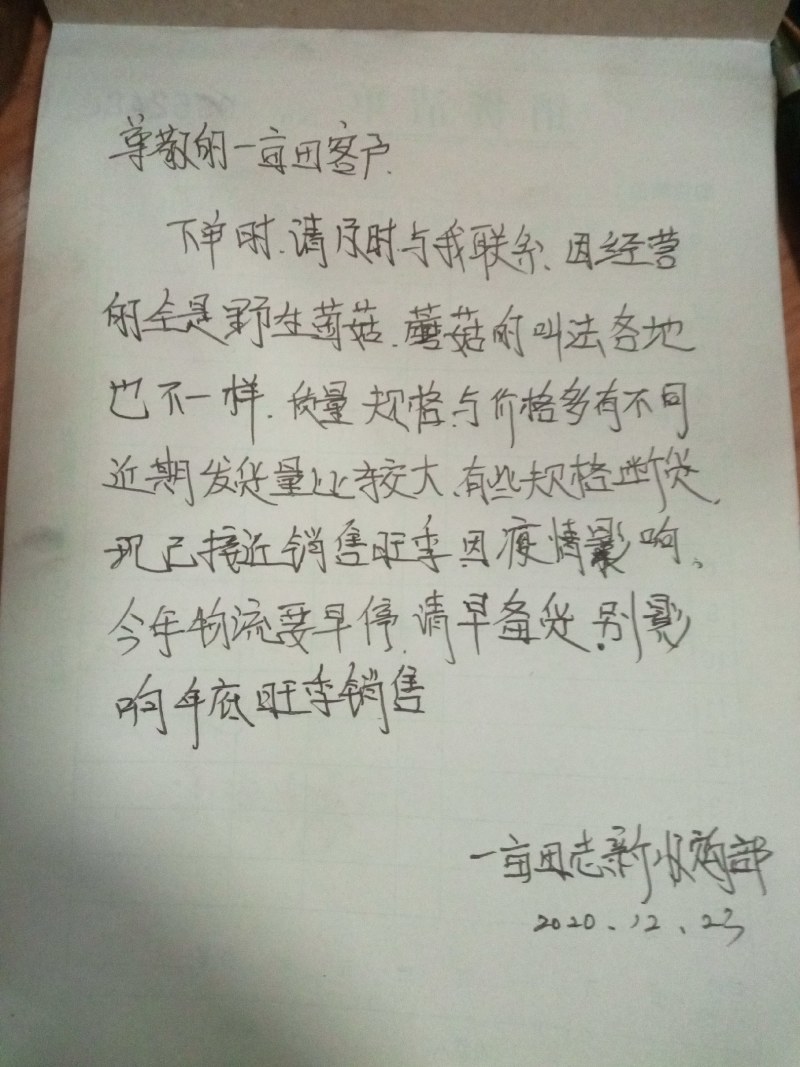 尊敬的一亩田客户.
下单时.请及时与我联系、因经营
的全是野生菌菇.蘑菇的叫法各地
也不一样.质量规格与价格多有不同
近期发货量比较大、有些规格断货、
现已接近销售旺季因疫情影响、
今年物流要早停.请早备货.别影
响年底旺季销售
一亩田志新收购部
2020.12.23